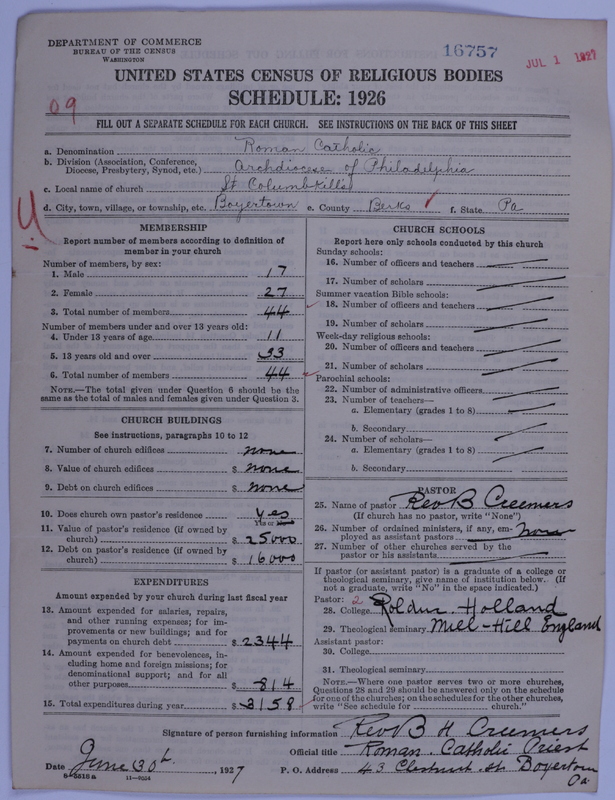 DEPARTMENT OF COMMERCE
BUREAU OF THE CENSUS
WASHINGTON
16757
JUL 1 1927
UNITED STATES CENSUS OF RELIGIOUS BODIES
SCHEDULE: 1926
09
FILL OUT A SEPARATE SCHEDULE FOR EACH CHURCH. SEE INSTRUCTIONS ON THE BACK OF THIS SHEET
a. Denomination Roman Catholic
b. Division (Association, Conference, Diocese, Presbytery, Synod, etc.) Archdiocese of Philadelphia
c. Local name of church St Columbkills
d. City, town, village, or township, etc. Boyertown e. County Berks f. State Pa
MEMBERSHIP
Report number of members according to definition of
member in your church
Number of members, by sex:
1. Male 17
2. Female 27
3. Total number of members 44
Number of members under and over 13 years old:
4. Under 13 years of age 11
5. 13 years old and over 33
6. Total number of members 44
NOTE.—The total given under Question 6 should be
same as the total of males and females given under Question 3.
CHURCH BUILDINGS
See instructions, paragraphs 10 to 12
7. Number of church edifices none
8. Value of church edifices $ none
9. Debt on church edifices $ none
10. Does church own pastor's residence? Yes
Yes or No
11. Value of pastor's residence (if owned by
church) $ 25000
12. Debt on pastor's residence (if owned by
church) $ 16000
EXPENDITURES
Amount expended by your church during last fiscal year
13. Amount expended for salaries, repairs,
and other running expenses; for im-
provements or new buildings; and for
payments on church debt $ 2344
14. Amount expended for benevolences, in-
cluding home and foreign missions; for
denominational support; and for all
other purposes $ 814
15. Total expenditures during year $ 3158
CHURCH SCHOOLS
Report here only schools conducted by this church
Sunday schools:
16. Number of officers and teachers
17. Number of scholars
Summer vacation Bible schools:
18. Number of officers and teachers
19. Number of scholars
Week-day religious schools:
20. Number of officers and teachers
21. Number of scholars
Parochial schools:
22. Number of administrative officers
23. Number of teachers—
a. Elementary (grades 1 to 8)
b. Secondary
24. Number of scholars—
a. Elementary (grades 1 to 8)
b. Secondary
PASTOR
25. Name of pastor Rev B Creemers
(If church has no pastor, write "None")
26. Number of ordained ministers, if any, em-
ployed as assistant pastors None
27. Number of other churches served by the
pastor or his assistants
If pastor (or assistant pastor) is a graduate of a college or
theological seminary, give name of institution below. (If
not a graduate, write "No" in the space indicated.)
Pastor: 2
28. College Rolduc Holland
29. Theological seminary Mill-Hill England
Assistant pastor:
30. College
31. Theological seminary
NOTE.—Where one pastor serves two or more churches,
Questions 28 and 29 should be answered only on the schedule
for one of the churches; on the schedules for the other churches,
write "See schedule for church."
Signature of person furnishing information Rev B H Creemers
Official title Roman Catholic Priest
Date June 30th, 1927 P. O. Address 43 Chestnut St Boyertown
Pa
8-5518 a 11-9034